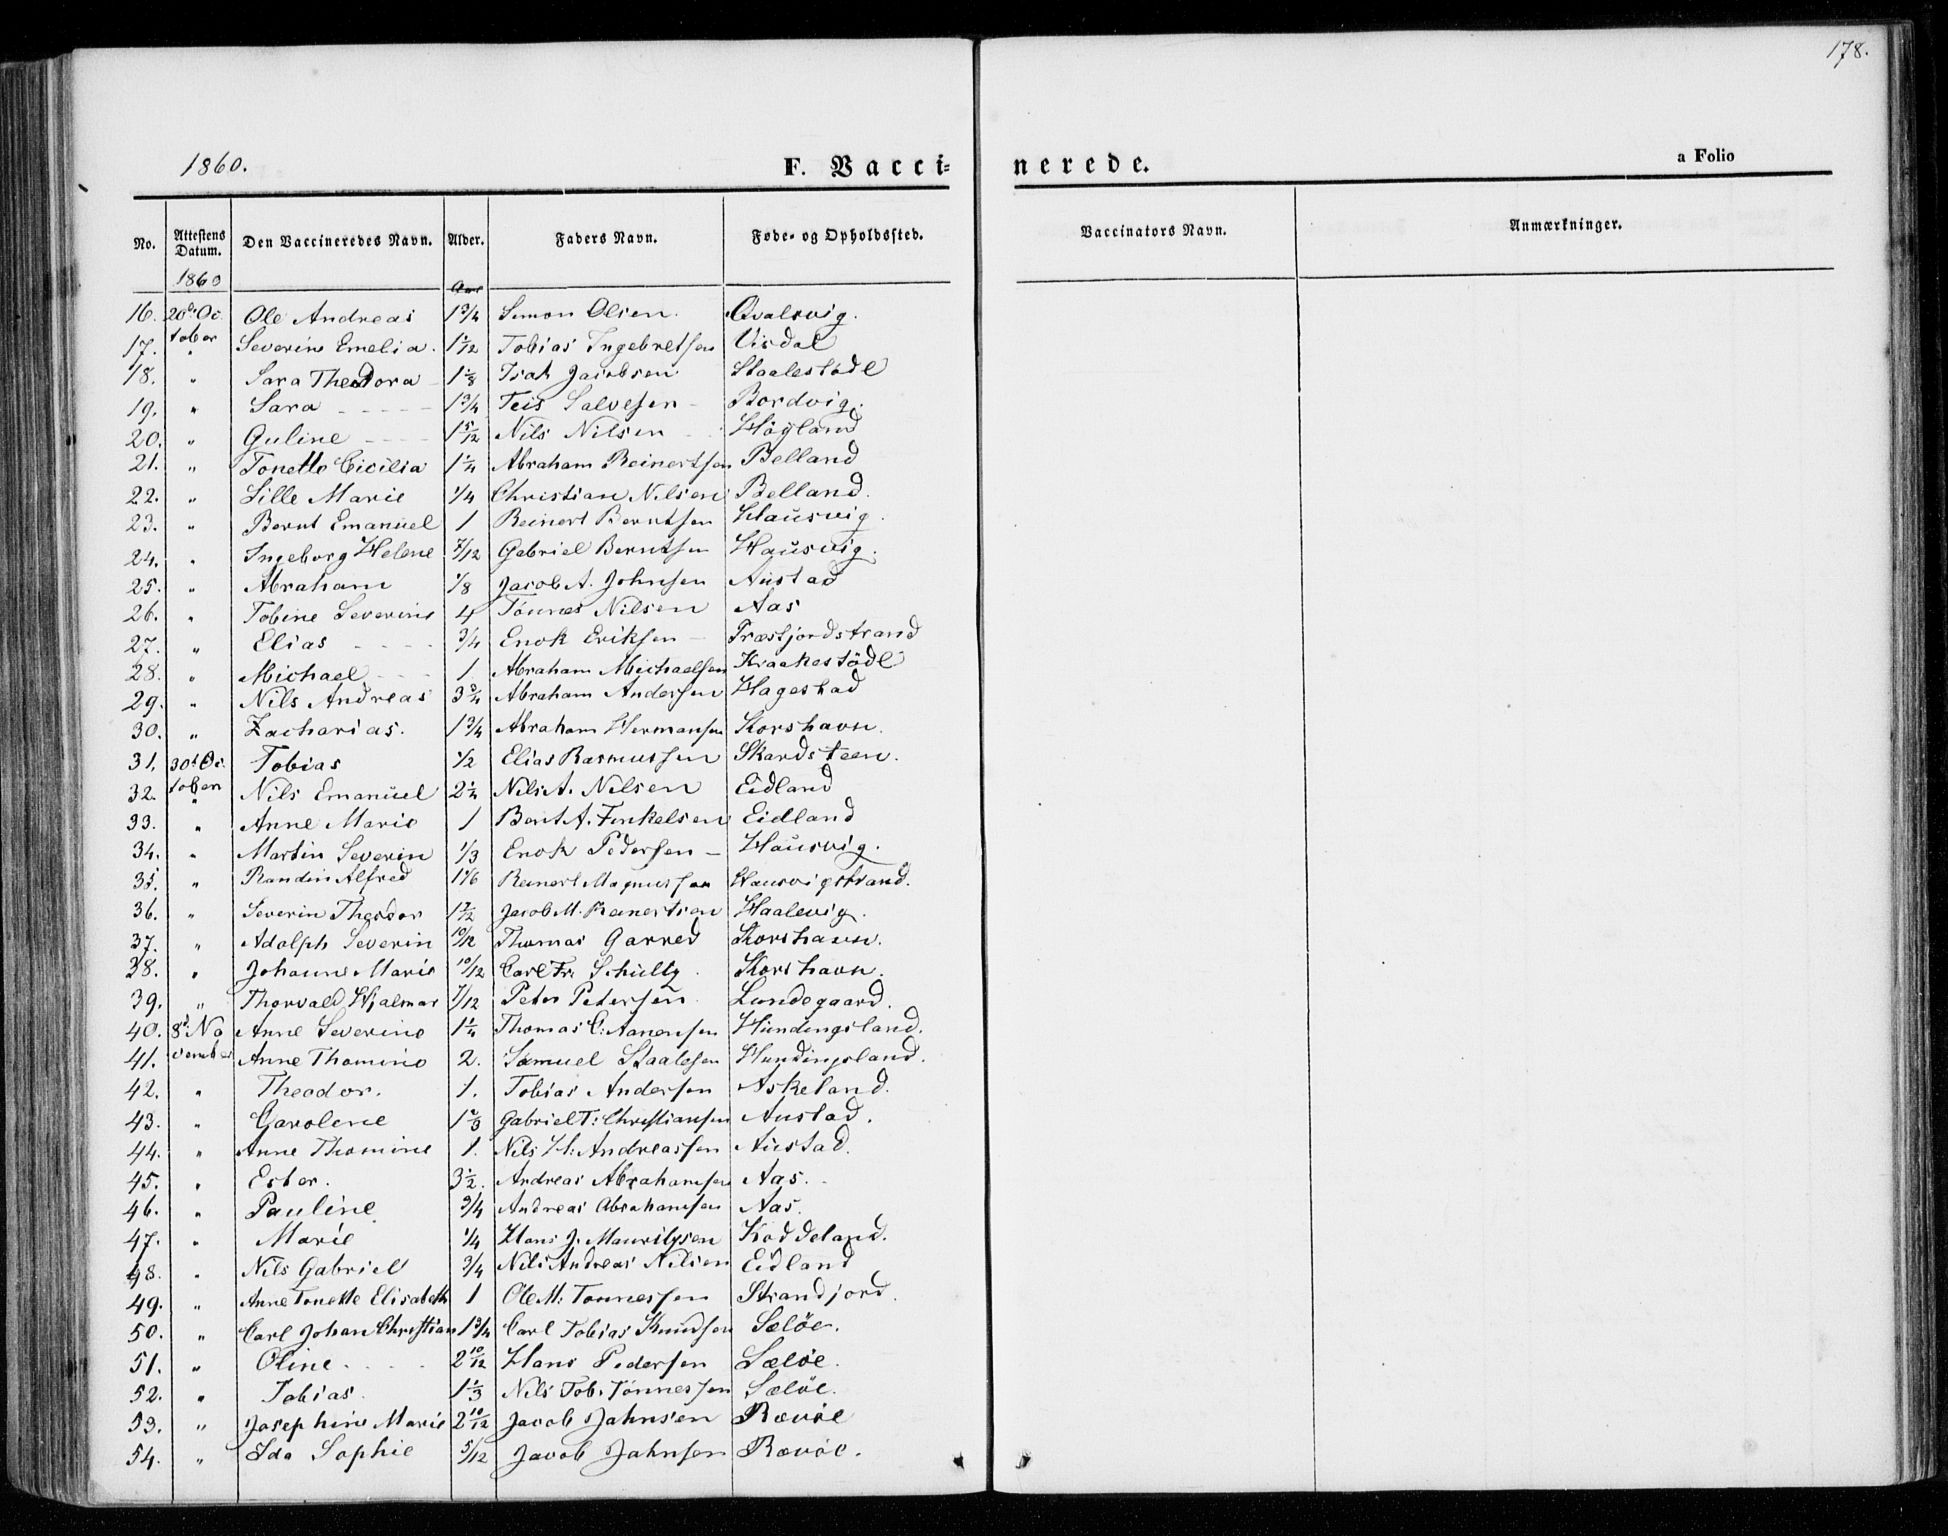 178.
1860. F. Vacci- nerede. a Folio
No. Attestens Datum. Den Vaccineredes Navn. Alder. Faders Navn. Føde- og Opholdssted. Vaccinators Navn. Anmærkninger.
1860 Aar
16. 20de Oc Ole Andreas 1 3/4 Simon Olsen Qvalsvig.
17. tober Severine Emelia. 1 1/12 Tobias Ingebretsen Visdal
18. " Sara Theodora 1 1/8 Isak Jacobsen Staalestødl
19. " Sara 1 3/4 Teis Salvesen Bordvig.
20. " Guline 1 5/12 Nils Nilsen Høyland
21. " Tonette Cicilia 1 1/4 Abraham Reinertsen Belland
22. " Lille Marie 1/4 Christian Nilsen Belland.
23. " Bernt Emanuel 1 Reinert Berntsen Hausvig.
24. " Ingeborg Helene 7/12 Gabriel Berntsen Hausvig.
25. " Abraham 1/8 Jacob A. Johnsen Austad
26. " Tobine Severine 4 Tønnes Nilsen Aas
27. " Elias 3/4 Enok Eriksen Træsfjordstrand
28. " Michael 1 Abraham Michaelsen Kraakestødl
29. " Nils Andreas 3 3/4 Abraham Andersen Hagestad
30. " Zacharias. 1 3/4 Abraham Hermansen Korshavn.
31. 30te Oc. Tobias 1/2 Elias Rasmussen Skardsteen.
32. tober Nils Emanuel 2 1/4 Nils A. Nilsen Eidland
33. " Anne Marie 1 Bent A. Finkelsen Eidland
34. " Martin Severin 1/3 Enok Pedersen Hausvig.
35. " Randin Alfred 1 1/6 Reinert Magnussen Hausvigstrand.
36. " Severin Theodor 1 1/2 Jacob M. Reinertsen Haalevig.
37. " Adolph Severin 10/12 Thomas Garred Korshavn.
38. " Johanne Marie 10/12 Carl Fr. Schultz Korshavn.
39. " Thorvald Hjalmar 7/12 Peter Petersen Lundegaard.
40. 8de No Anne Severine 1 1/4 Thomas C: Aanensen Hundingsland.
41. vember Anne Thomine 2. Samuel Staalesen Hundingsland.
42. " Theodor. 1. Tobias Andersen Askeland.
43. " Carolene 1 2/3 Gabriel T: Christiansen Austad.
44. " Anne Thomine 1. Nils H: Andreassen Austad.
45. " Ester. 3 1/2. Andreas Abrahamsen Aas.
46. " Pauline 3/4 Andreas Abrahamsen Aas.
47. " Marie 1/4 Hans J. Mauritzsen Koddeland.
48. " Nils Gabriel 3/4 Nils Andreas Nilsen Eidland
49. " Anne Tonette Elisabeth 1 Ole M: Tønnessen Strandjord.
50. " Carl Johan Christian 1 3/4 Carl Tobias Knudsen Sæløe.
51. " Oline 2 10/12 Hans Pedersen Sæløe.
52. " Tobias. 1 1/3 Nils Tob. Tønnessen Sæløe.
53. " Josephine Marie 2 10/12 Jacob Jahnsen Rævøe
54. " Ida Sophie 5/12 Jacob Jahnsen Rævøe.